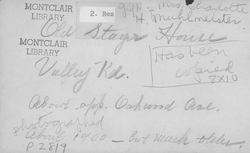 MONTCLAIR
LIBRARY
2. Res
Mrs. Charlotte
H. Muhlmeister.
Old Stage House
MONTCLAIR
LIBRARY
Has been
Valley Rd.
7X10
About opp. Oakwood Ave.
photographed
about 1900 - but much older.
P 2819